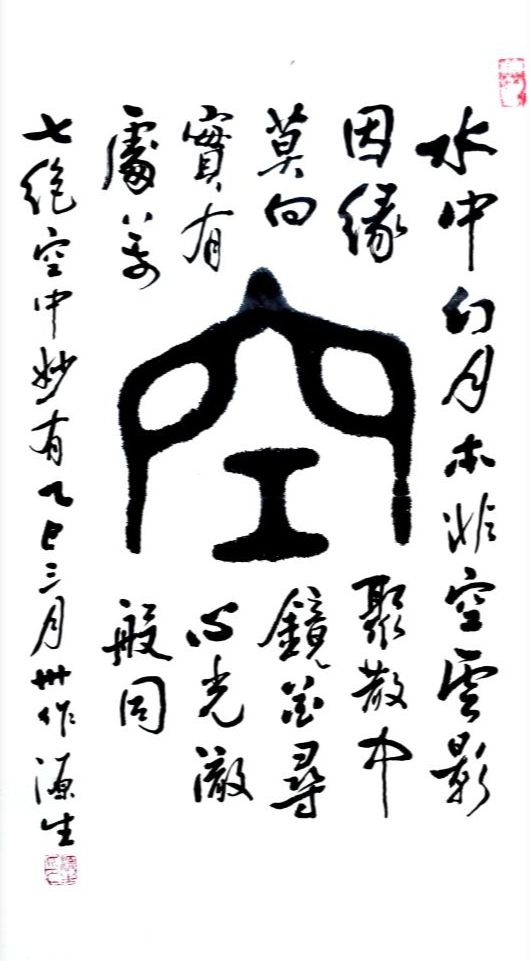 水中幻月本非空雲影
因緣聚散中
莫向鏡花尋
實有心光澈
處萬般同
空
七絕空中妙有乙巳三月卅作源生